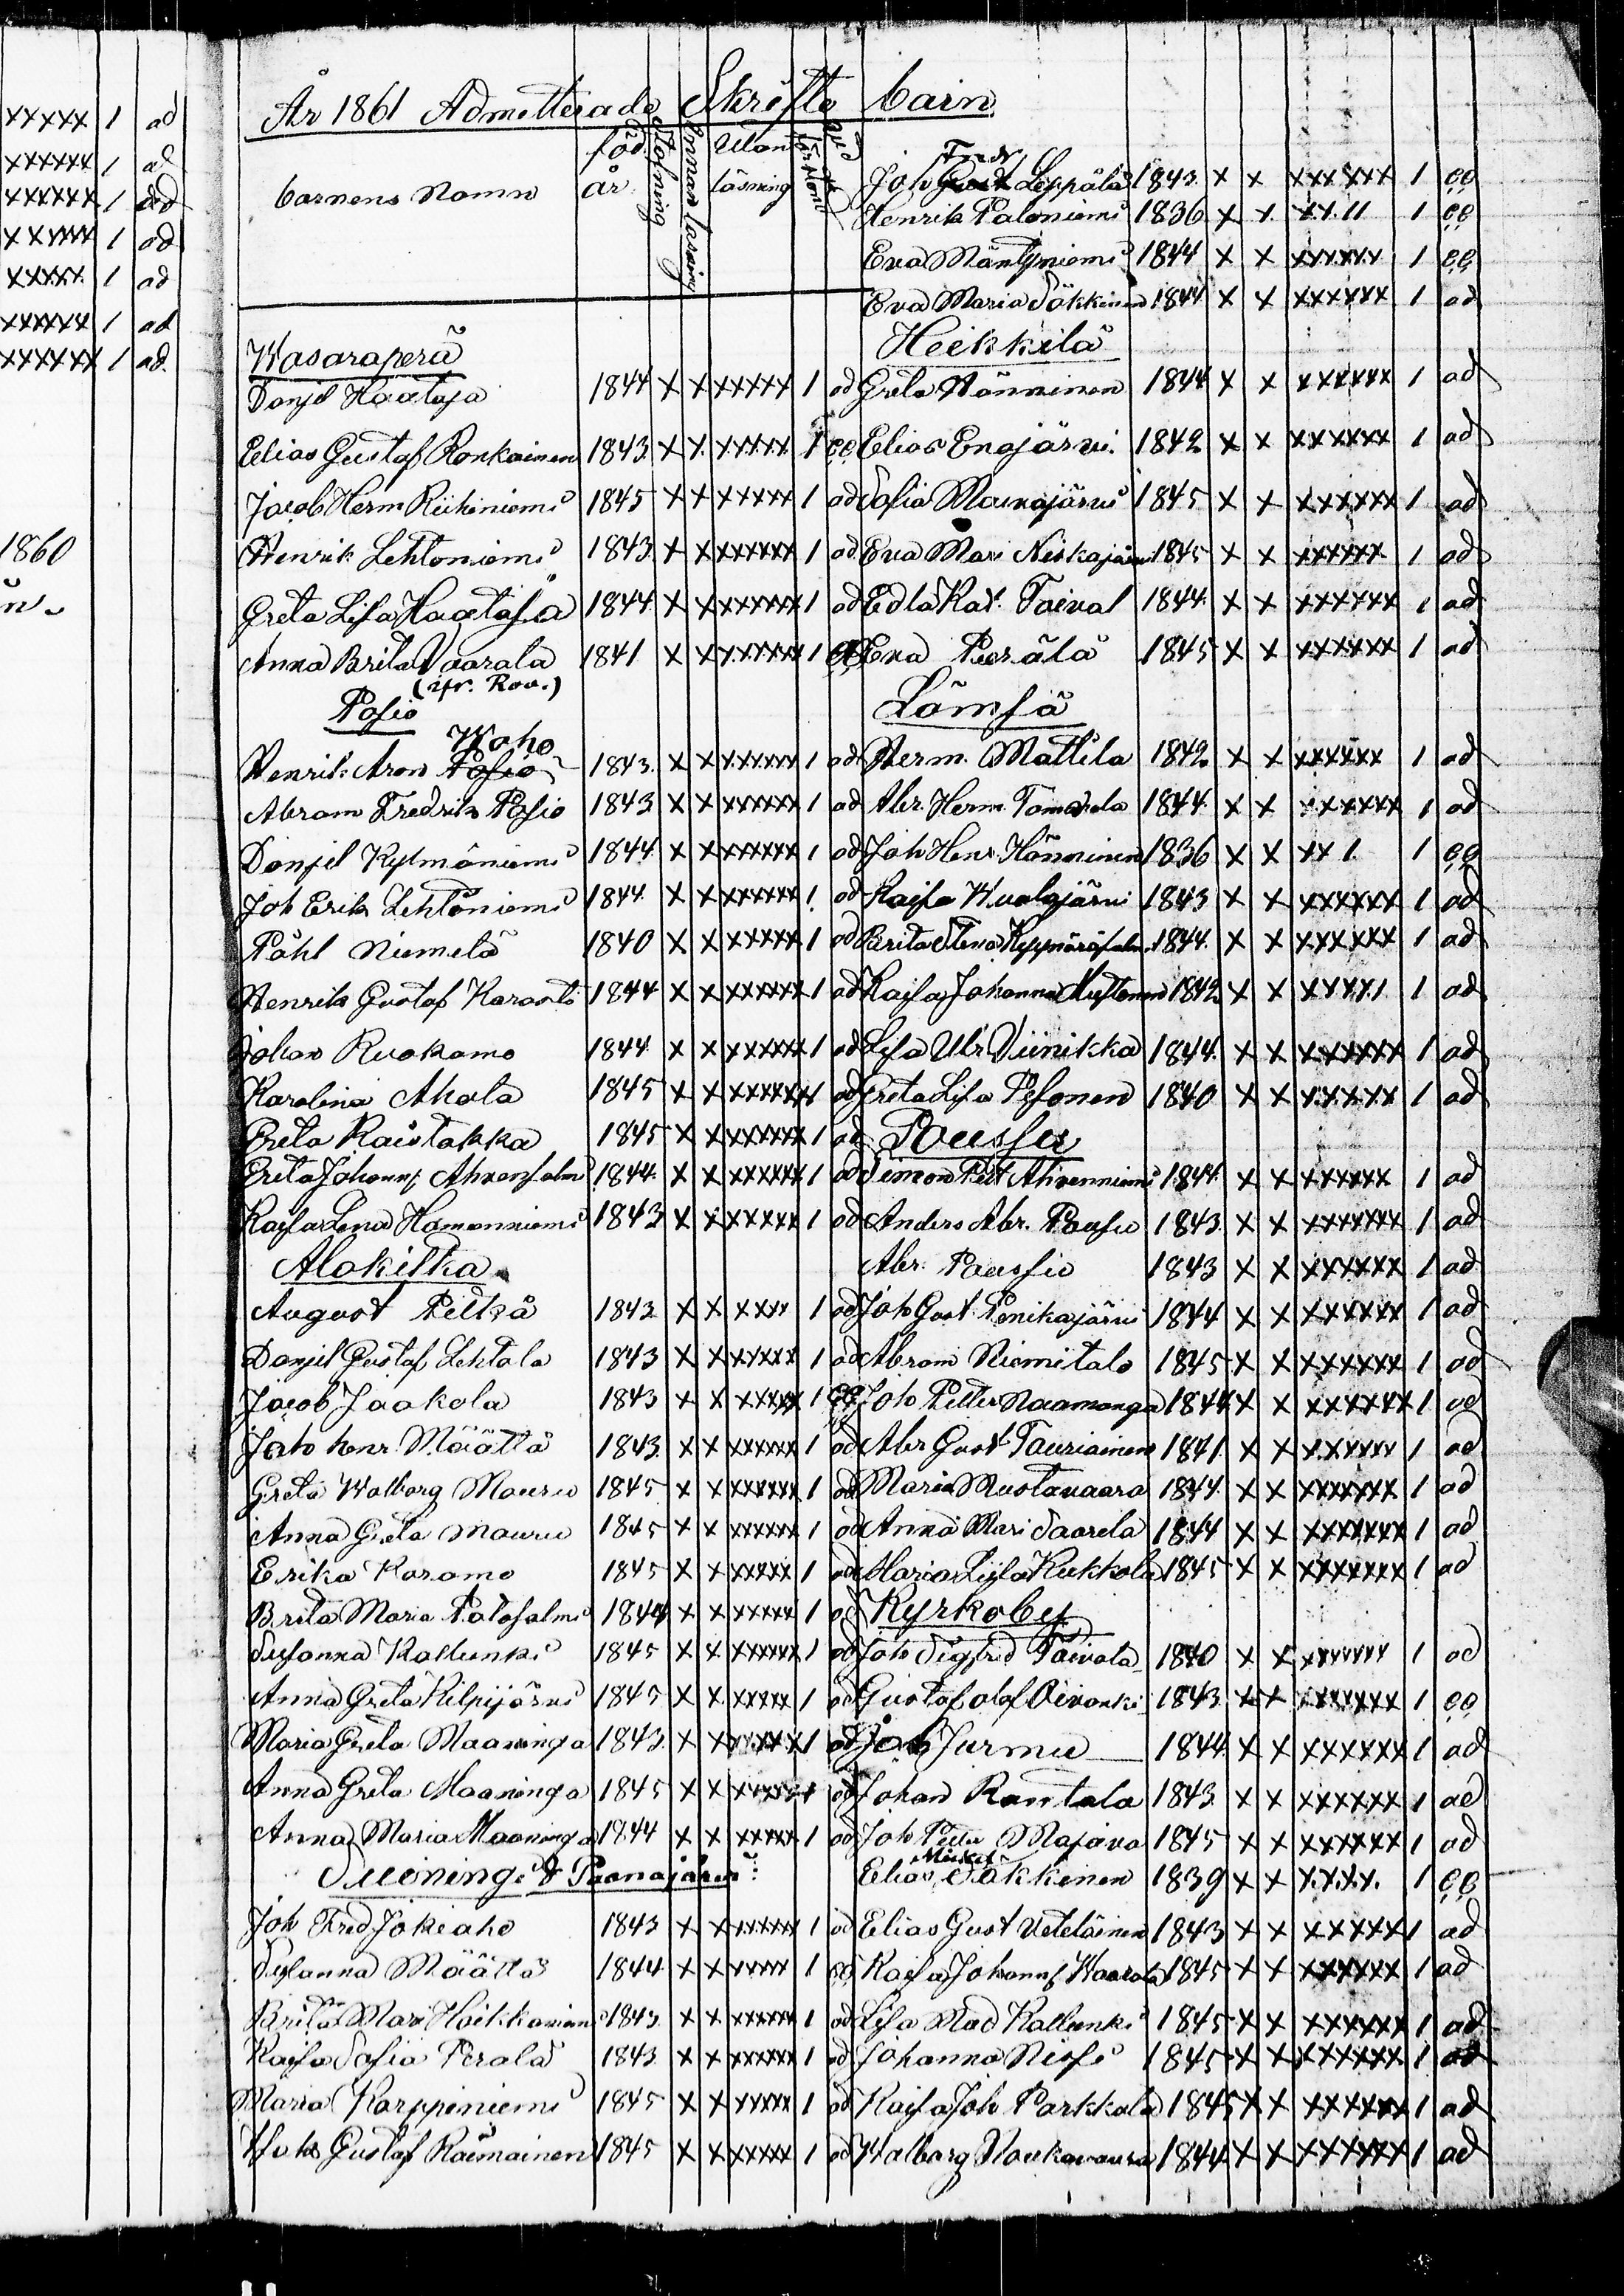 xxxxx 1 ad
xxxxxx 1 ad
xxxxxx 1 ad
xxxxxx 1 ad
xxxxx 1 ad
xxxxxx 1 ad
xxxxxx 1 ad
1860
År 1861 Admitterade Skrifte barn
barnens Namn föd. år Stafning Innanläsning Utan läsning
Wasaraperä
Danjel Haataja 1844 x x xxxxx 1 ad
Elias Gustaf Ronkainen 1843 x x xxxxx 1 ee
Jacob Herm Riihiniemi 1845 x x xxxxx 1 ad
Henrik Lehtoniemi 1843 x xxxxxxx 1 ad
Greta Lisa Haataja 1844 x xxxxxxx 1 ad
Anna Brita Vaarala 1841 x xxxxxxx 1
(ifr. Rov.)
Posio
Waho
Henrik Aron Posio 1843 x x xxxxxx 1 ad
Abram Fredrik Posio 1843 x x xxxxxx 1 ad
Danjel Kylmäniemi 1844 x x xxxxxx 1 ad
Joh Erik Lehtoniemi 1844 x x xxxxxx 1 ad
Påhl Niemelä 1840 x x xxxxx 1 ad
Henrik Gustaf Karasti 1844 x x xxxxxx 1 ad
Johan Ruokamo 1844 x x xxxxxx 1 ad
Karolina Ahola 1845 x x xxxxxx 1 ad
Greta Raistakka 1845 x xxxxxxx 1 ad
Greta Johanna Ahvensalmi 1844 x x xxxxxx 1 ad
Kajsa Lena Hamanniemi 1843 x x xxxxxx 1 ad
Alakitka
August Pitkä 1843 x x xxxx 1 ad
Danjel Gustaf Lehtola 1843 x x xxxxx 1 ad
Jacob Jaakola 1843 x x xxxxx 1 ee
Joh henr. Määttä 1843 x x xxxxxx 1 ad
Greta Walborg Mauru 1845 x x xxxxxx 1 ad
Anna Greta Mauru 1845 x x xxxxxx 1 ad
Erika Karamo 1845 x x xxxxx 1 ad
Brita Maria Patosalmi 1844 x x xxxxx 1 ad
Susanna Kallunki 1845 x x xxxxxx 1 ad
Anna Greta Kilpijärvi 1845 x x xxxxx 1 ad
Maria Greta Maaninga 1843 x xxxxxxx 1 ad
Anna Greta Maaninga 1845 x x xxxxx 1 ad
Anna Maria Maaninga 1844 x x xxxxx 1 ad
Suiningi & Paanajärvi
Joh Fred Jokiaho 1843 x x xxxxxx 1 ad
Susanna Määttä 1844 x x xxxxx 1 ad
Brita Mari Heikkaniemi 1843 x x xxxxxx 1 ad
Kajsa Sofia Perälä 1843 x x xxxxxx 1 ad
Maria Karppiniemi 1845 x x xxxxx 1 ad
Gustaf Räimainen 1845 x x xxxxx 1 ad
Fredr
Joh Gust Leppälä 1843 x x xxxxxx 1 ee
Henrik Paloniemi 1836 x x xx 11 1 ee
Eva Mäntyniemi 1844 x x xxxxxx 1 ee
Eva Maria Säkkinen 1844 x x xxxxxx 1 ad
Heikkilä
Greta Hänninen 1844 x x xxxxxx 1 ad
Elias Enojärvi 1842 x x xxxxxx 1 ad
Sofia Maunajärvi 1845 x x xxxxxx 1 ad
Eva Mari Niskajärvi 1845 x x xxxxxx 1 ad
Edla Kat. Taival 1844 x x xxxxxx 1 ad
Eva Perälä 1845 x x xxxxxx 1 ad
Lämsä
Herm. Mattila 1842 x x xxxxxx 1 ad
Abr. Herm. 1844 x x xxxxxx 1 ad
Joh Henr. Hänninen 1836 x x xx 1 1 ee
Kajsa Wuolajärvi 1843 x x xxxxxx 1 ad
Brita Stina 1844 x x xxxxxx 1 ad
Kajsa Johanna Mustonen 1842 x x xxxx1 1 ad
Lisa Ulr Viinikka 1844 x x xxxxxx 1 ad
Greta Lisa Pesonen 1840 x x xxxxx 1 ad
Poussu
Simon Pett Ahvenniemi 1844 x x xxxxxx 1 ad
Anders Abr. Poussu 1843 x x xxxxxx 1 ad
Abr. Poussu 1843 x x xxxxxx 1 ad
Joh Gust Penikajärvi 1844 x x xxxxxx 1 ad
Abram Niemitalo 1845 x x xxxxxx 1 ad
Joh Petter Naamanga 1844 x x xxxxxx 1 ad
Abr Gust Tauriainen 1841 x x xxxxxx 1 ad
Maria Mustavaara 1844 x x xxxxxx 1 ad
Anna Mari Saarela 1844 x x xxxxxxx 1 ad
Maria Lisa Kukkola 1845 x x xxxxxxx 1 ad
Kyrkoby
Joh Sigfrid Taivola 1840 x x xxxxxx 1 ad
Gustaf Olof Oivanki 1843 x x xxxxxx 1 ee
Job Jurmu 1844 x x xxxxxx 1 ad
Johan Rantala 1843 x x xxxxxx 1 ad
Joh Petter Majava 1845 x x xxxxxx 1 ad
Mickel
Elias Säkkinen 1839 x x xxxx 1 ee
Elias Gust Veteläinen 1843 x x xxxxxx 1 ad
Kajsa Johanna Waarala 1845 x x xxxxxx 1 ad
Lisa Mad Kallunki 1845 x x xxxxxx 1 ad
Johanna Nissi 1845 x x xxxxxx 1 ad
Kajsa Joh Parkkala 1845 x x xxxxxx 1 ad
Walborg Naukavaara 1844 x x xxxxxx 1 ad